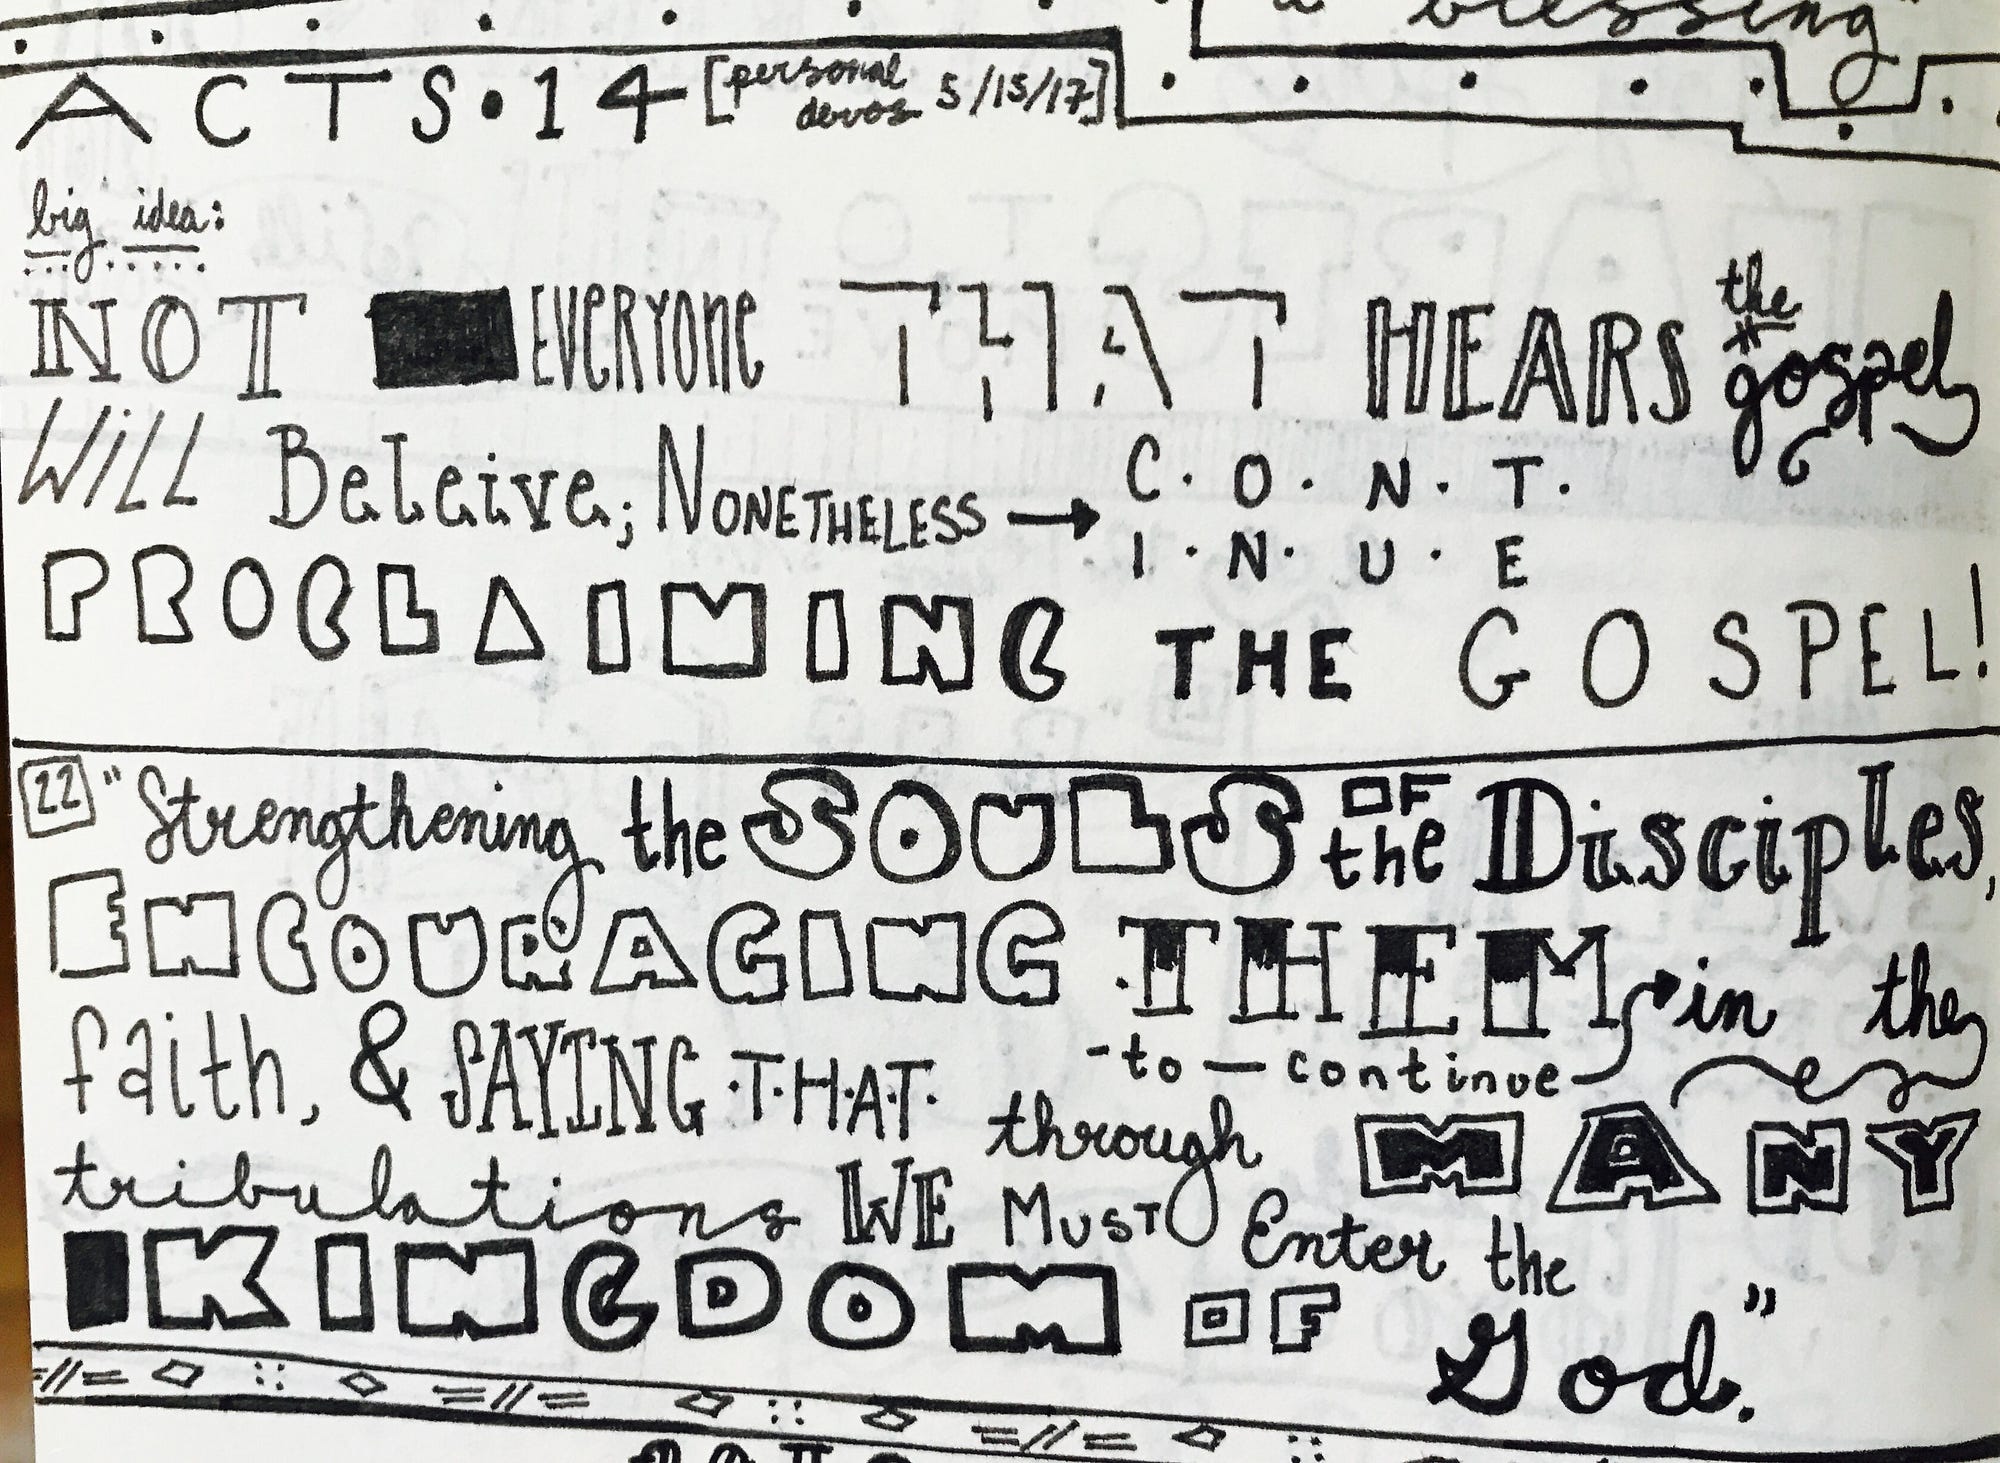 a blessing"
ACTS•14 [personal devos 5/15/17]
big idea:
NOT EVERYONE THAT HEARS the gospel
WILL Beleive; NONETHELESS → C·O·N·T·
I·N·U·E
PROCLAIMING THE GOSPEL!
22 "Strengthening the SOULS OF the Disciples,
ENCOURAGING THEM
-to-continue → in the
faith, & SAYING ·T·H·A·T· through MANY
tribulations WE MUST Enter the
KINGDOM OF God."